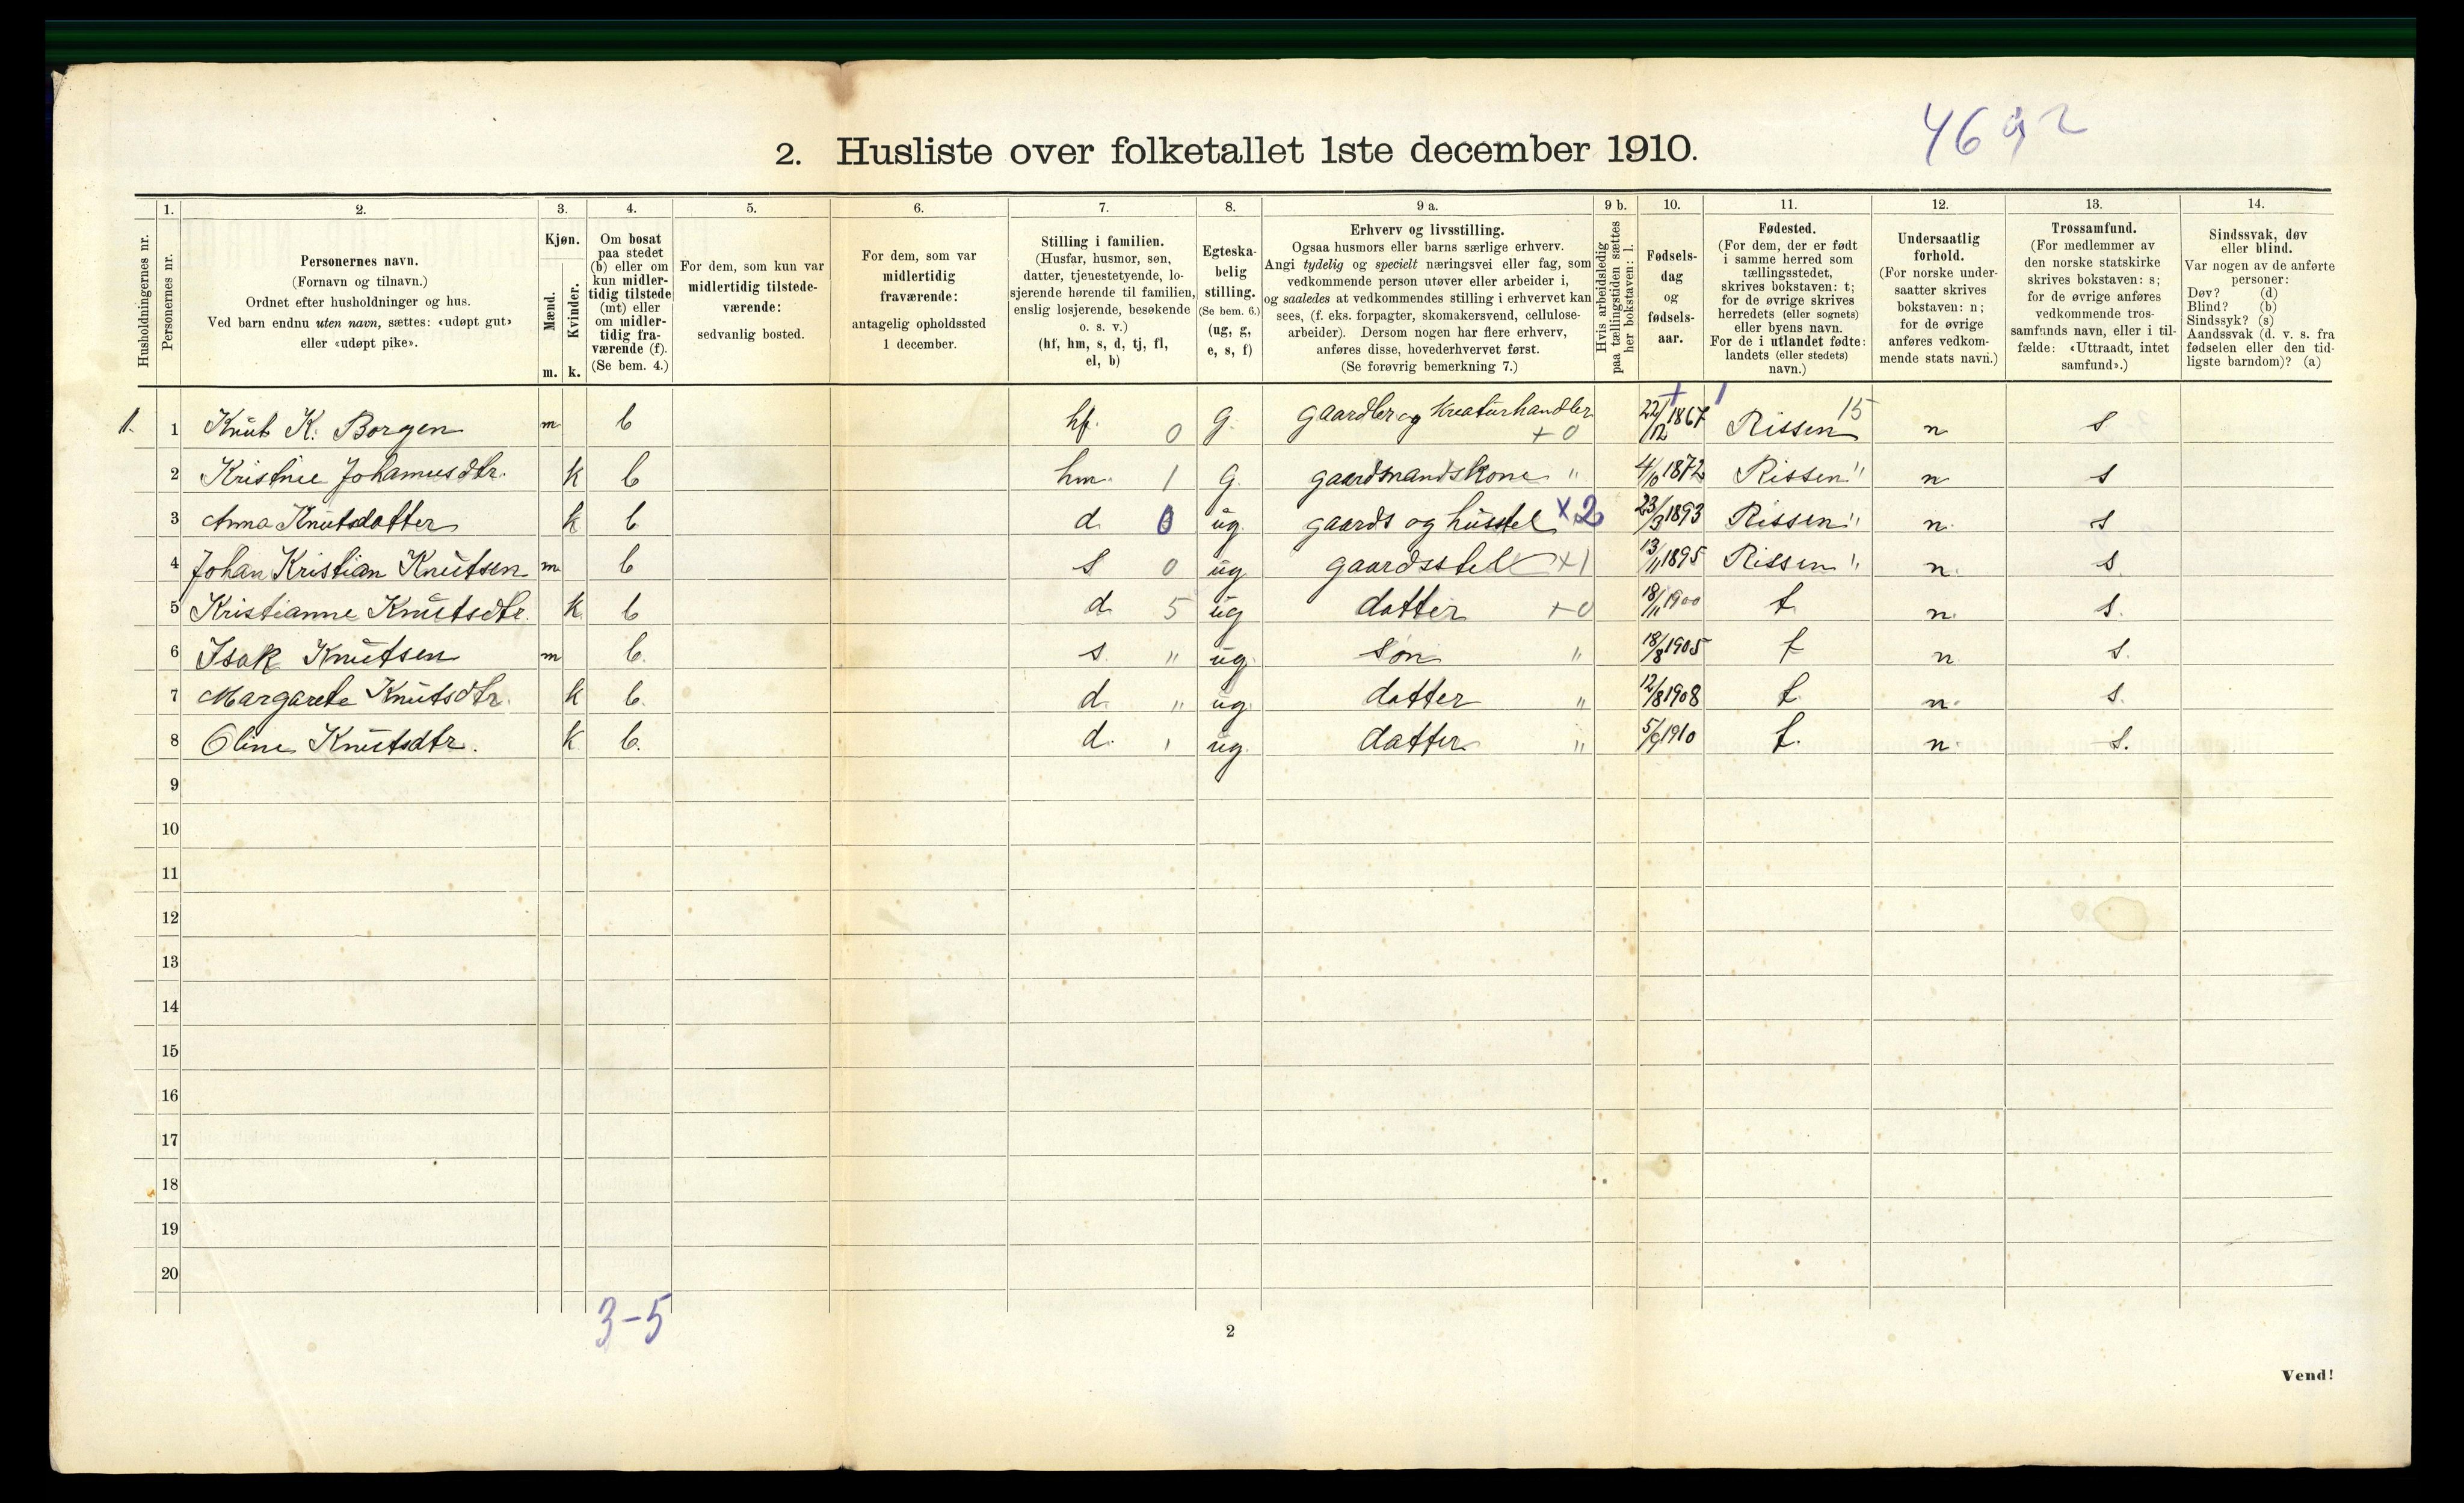 4692
2. Husliste over folketallet 1ste december 1910.
Husholdningernes nr.
1. Personernes nr.
2. Personernes navn. (Fornavn og tilnavn.) Ordnet efter husholdninger og hus. Ved barn endnu uten navn, sættes: «udøpt gut» eller «udøpt pike».
3. Kjøn. Mænd. m. Kvinder. k.
4. Om bosat paa stedet (b) eller om kun midlertidig tilstede (mt) eller om midlertidig fraværende (f). (Se bem. 4.)
5. For dem, som kun var midlertidig tilstedeværende: sedvanlig bosted.
6. For dem, som var midlertidig fraværende: antagelig opholdssted 1 december.
7. Stilling i familien. (Husfar, husmor, søn, datter, tjenestetyende, losjerende hørende til familien, enslig losjerende, besøkende o. s. v.) (hf, hm, s, d, tj, fl, el, b)
8. Egteskabelig stilling. (Se bem. 6.) (ug, g, e, s, f)
9 a. Erhverv og livsstilling. Ogsaa husmors eller barns særlige erhverv. Angi tydelig og specielt næringsvei eller fag, som vedkommende person utøver eller arbeider i, og saaledes at vedkommendes stilling i erhvervet kan sees, (f. eks. forpagter, skomakersvend, cellulosearbeider). Dersom nogen har flere erhverv, anføres disse, hovederhvervet først. (Se forøvrig bemerkning 7.)
9 b. Hvis arbeidsledig paa tællingstiden sættes her bokstaven: l.
10. Fødselsdag og fødselsaar.
11. Fødested. (For dem, der er født i samme herred som tællingsstedet, skrives bokstaven: t; for de øvrige skrives herredets (eller sognets) eller byens navn. For de i utlandet fødte: landets (eller stedets) navn.)
12. Undersaatlig forhold. (For norske undersaatter skrives bokstaven: n; for de øvrige anføres vedkommende stats navn.)
13. Trossamfund. (For medlemmer av den norske statskirke skrives bokstaven: s; for de øvrige anføres vedkommende trossamfunds navn, eller i tilfælde: «Uttraadt, intet samfund».)
14. Sindssvak, døv eller blind. Var nogen av de anførte personer: Døv? (d) Blind? (b) Sindssyk? (s) Aandssvak (d. v. s. fra fødselen eller den tidligste barndom)? (a)
1. 1 Knut K. Borgen m b hf. 0 g. gaardbr og Kreaturhandler +0 22/12 1867 Rissen 15 n s
2 Kristine Johannesdtr. k b hm. 1 g. gaardmandskone " 4/10 1872 Rissen " n s
3 Anna Knutsdatter k b d. 0 ug. gaards og husstel x2 23/3 1893 Rissen " n. s
4 Johan Kristian Knutsen m b s 0 ug gaardsstel x1 13/11 1895 Rissen " n. s.
5 Kristianne Knutsdtr. k b d. 5 ug datter +0 18/11 1900 t n. s.
6 Isak Knutsen m b. s. " ug. søn " 18/8 1905 t n s.
7 Margarete Knutsdtr. k b. d. " ug. datter " 12/8 1908 t n. s.
8 Oline Knutsdtr. k b. d. " ug. datter " 5/9 1910 t. n. s.
9
10
11
12
13
14
15
16
17
18
19
20
3-5
2
Vend!